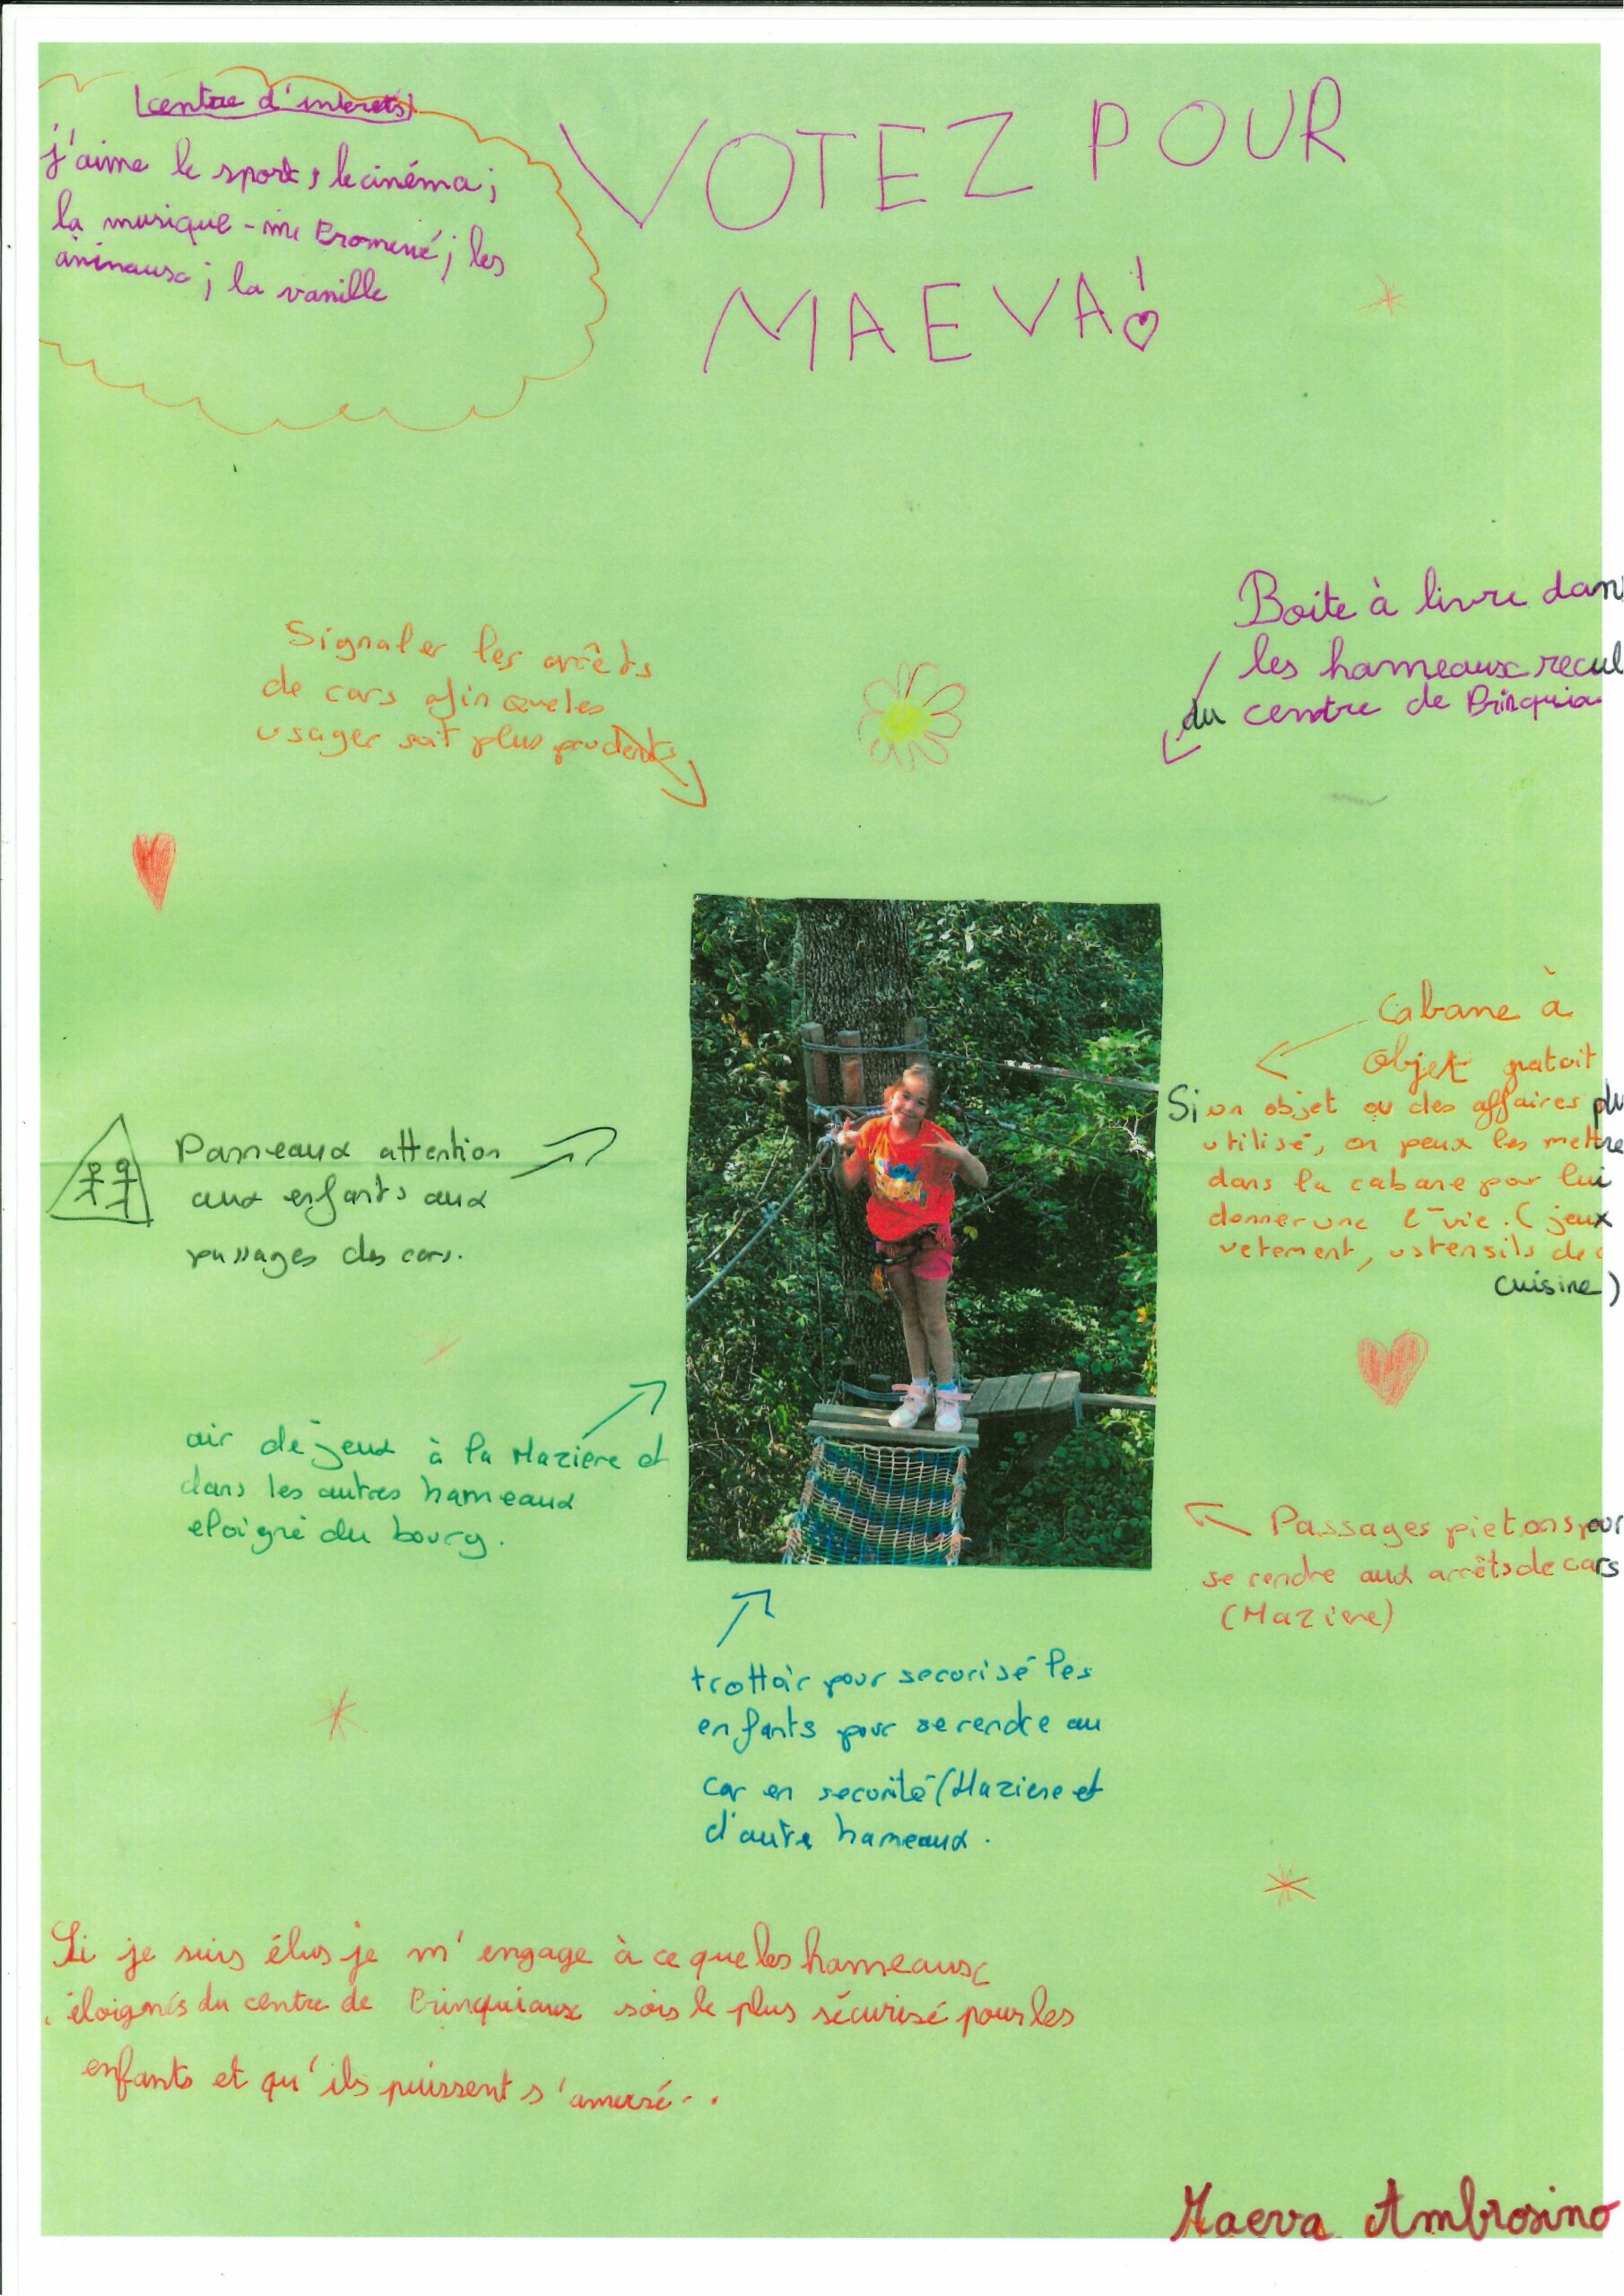 centre d'interets
j'aime le sport, le cinéma;
la musique - me Promené; les
animaux; la vanille
VOTEZ POUR
MAEVA!
Signaler les arrêts
de cars afin que les
usager soit plus prudents
Boite à livre dan
les hameaux recul
du centre de Brinquia
Cabane à
Objet gratuit
Si un objet ou des affaires plu
utilisé, on peux les mettre
dans la cabane pour lui
donner une 2 vie. (jeux
vetement, ustensils de
cuisine)
Panneaux attention
aux enfants aux
passages des cars.
air de jeux à la Maziere et
dans les autres hameaux
eloigné du bourg.
Passages pietons pour
se rendre aux arrêts de cars
(Maziere)
trottoir pour securisé les
enfants pour se rendre au
car en securité (Maziere et
d'autre hameaux.
Si je suis élus je m'engage à ce que les hameaux
éloignés du centre de Brinquiaux sois le plus sécurisé pour les
enfants et qu'ils puissent s'amusé..
Maeva Ambrosino